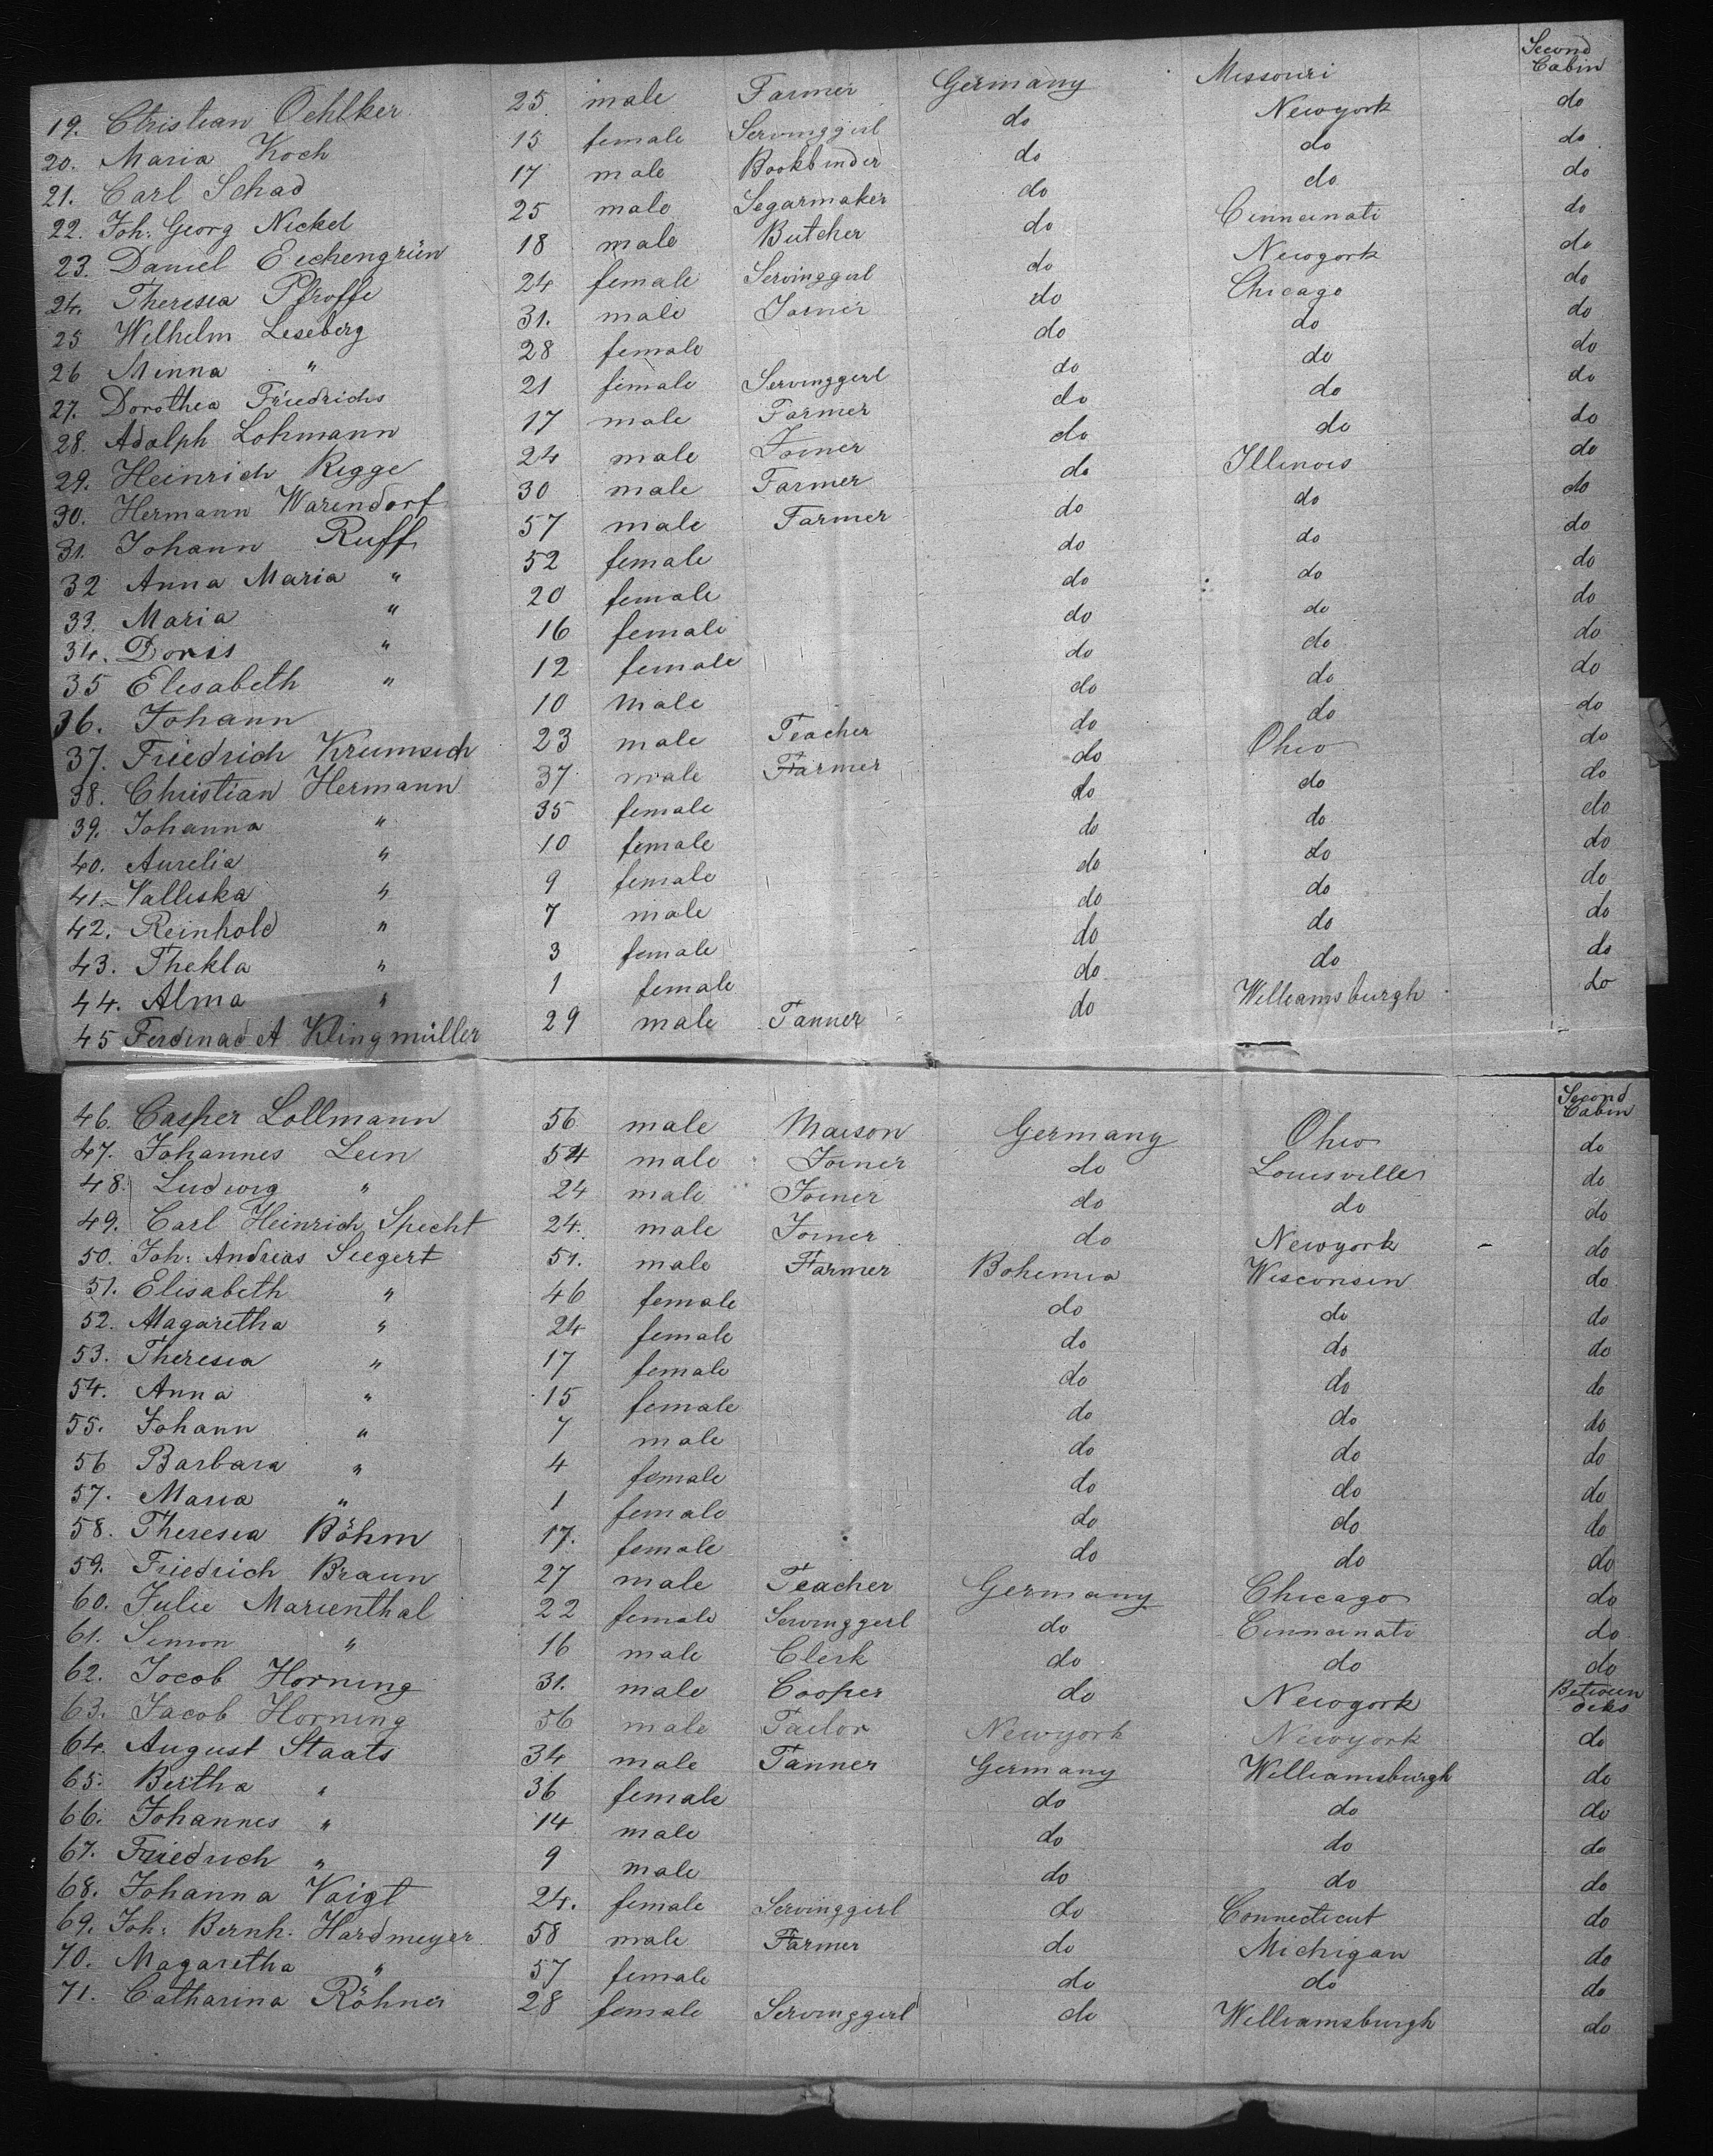 19. Christian Oehlker. 25 male Farmer Germany Missouri Second Cabin
20. Maria Koch 15 female Servinggirl do Newyork do
21. Carl Schad 17 male Bookbinder do do do
22. Joh. Georg Nickel 25 male Segarmaker do do do
23. Daniel Eichengrün 18 male Butcher do Cinncinati do
24. Theresia Pfroffe 24 female Servinggirl do Newyork do
25 Wilhelm Leseberg 31. male Joiner do Chicago do
26 Minna " 28 female do do do
27. Dorothea Friedrichs 21 female Servinggirl do do do
28. Adolph Lohmann 17 male Farmer do do do
29. Heinrich Rigge 24 male Joiner do do do
30. Hermann Warendorf 30 male Farmer do Illinois do
31. Johann Ruff 57 male Farmer do do do
32 Anna Maria " 52 female do do do
33. Maria " 20 female do do do
34. Doris " 16 female do do do
35 Elisabeth " 12 female do do do
36. Johann 10 male do do do
37. Friedrich Krumsich 23 male Teacher do do do
38. Christian Hermann 37 male Farmer do Ohio do
39. Johanna " 35 female do do do
40. Aurelia " 10 female do do do
41. Valliska " 9 female do do do
42. Reinhold " 7 male do do do
43. Thekla " 3 female do do do
44. Alma " 1 female do do do
45 Ferdinad A Klingmüller 29 male Tanner do Williamsburgh do
Second Cabin
46. Casper Lollmann 56 male Maison Germany Ohio do
47. Johannes Lein 54 male Joiner do Louisville do
48. Ludwig " 24 male Joiner do do do
49. Carl Heinrich Specht 24. male Joiner do Newyork do
50. Joh: Andreas Siegert 51. male Farmer Bohemia Wisconsin do
51. Elisabeth " 46 female do do do
52. Magaretha " 24 female do do do
53. Theresia " 17 female do do do
54. Anna " 15 female do do do
55. Johann " 7 male do do do
56 Barbara " 4 female do do do
57. Maria " 1 female do do do
58. Theresia Böhm 17. female do do do
59. Friedrich Braun 27 male Teacher Germany Chicago do
60. Julie Marienthal 22 female Servinggirl do Cinncinati do
61. Simon " 16 male Clerk do do do
62. Jocob Horning 31. male Cooper do Newyork Between deks
63. Jacob Horning 56 male Tailor Newyork Newyork do
64. August Staats 34 male Tanner Germany Williamsburgh do
65. Bertha " 36 female do do do
66. Johannes " 14 male do do do
67. Friedrich " 9 male do do do
68. Johanna Voigt 24. female Servinggirl do Connecticut do
69. Joh: Bernh. Hardmeyer 58 male Farmer do Michigan do
70. Magaretha " 57 female do do do
71. Catharina Röhner 28 female Servinggirl do Williamsburgh do